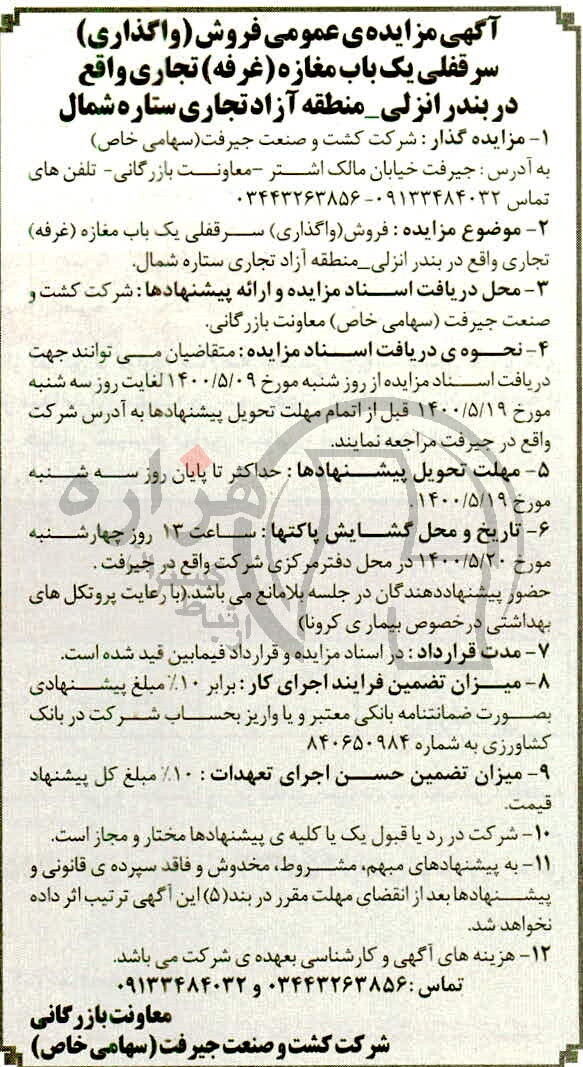 آگهی مزایده‌ی عمومی فروش (واگذاری)
سرقفلی یک باب مغازه (غرفه) تجاری واقع
در بندر انزلی_منطقه آزاد تجاری ستاره شمال
۱- مزایده گذار : شرکت کشت و صنعت جیرفت(سهامی خاص)
به آدرس : جیرفت خیابان مالک اشتر –معاونت بازرگانی- تلفن های
تماس ۰۹۱۳۳۴۸۴۰۳۲- ۰۳۴۴۳۲۶۳۸۵۶
۲- موضوع مزایده : فروش(واگذاری) سرقفلی یک باب مغازه (غرفه)
تجاری واقع در بندر انزلی_منطقه آزاد تجاری ستاره شمال.
۳- محل دریافت اسناد مزایده و ارائه پیشنهادها : شرکت کشت و
صنعت جیرفت (سهامی خاص) معاونت بازرگانی.
۴- نحوه ی دریافت اسناد مزایده : متقاضیان می توانند جهت
دریافت اسناد مزایده از روز شنبه مورخ ۱۴۰۰/۵/۰۹ لغایت روز سه شنبه
مورخ ۱۴۰۰/۵/۱۹ قبل از اتمام مهلت تحویل پیشنهادها به آدرس شرکت
واقع در جیرفت مراجعه نمایند.
۵- مهلت تحویل پیشنهادها : حداکثر تا پایان روز سه شنبه
مورخ ۱۴۰۰/۵/۱۹ .
۶- تاریخ و محل گشایش پاکتها : ساعت ۱۳ روز چهارشنبه
مورخ ۱۴۰۰/۵/۲۰ در محل دفتر مرکزی شرکت واقع در جیرفت .
حضور پیشنهاددهندگان در جلسه بلامانع می باشد.(با رعایت پروتکل های
بهداشتی درخصوص بیماری کرونا)
۷- مدت قرارداد : در اسناد مزایده و قرارداد فیمابین قید شده است.
۸- میزان تضمین فرایند اجرای کار : برابر ۱۰٪ مبلغ پیشنهادی
بصورت ضمانتنامه بانکی معتبر و یا واریز بحساب شرکت در بانک
کشاورزی به شماره ۸۴۰۶۵۰۹۸۴
۹- میزان تضمین حسن اجرای تعهدات : ۱۰٪ مبلغ کل پیشنهاد
قیمت.
۱۰- شرکت در رد یا قبول یک یا کلیه ی پیشنهادها مختار و مجاز است.
۱۱- به پیشنهادهای مبهم، مشروط، مخدوش و فاقد سپرده ی قانونی و
پیشنهادها بعد از انقضای مهلت مقرر در بند(۵) این آگهی ترتیب اثر داده
نخواهد شد.
۱۲- هزینه های آگهی و کارشناسی بعهده ی شرکت می باشد.
تماس :۰۳۴۴۳۲۶۳۸۵۶ و ۰۹۱۳۳۴۸۴۰۳۲
معاونت بازرگانی
شرکت کشت و صنعت جیرفت (سهامی خاص)
هزاره